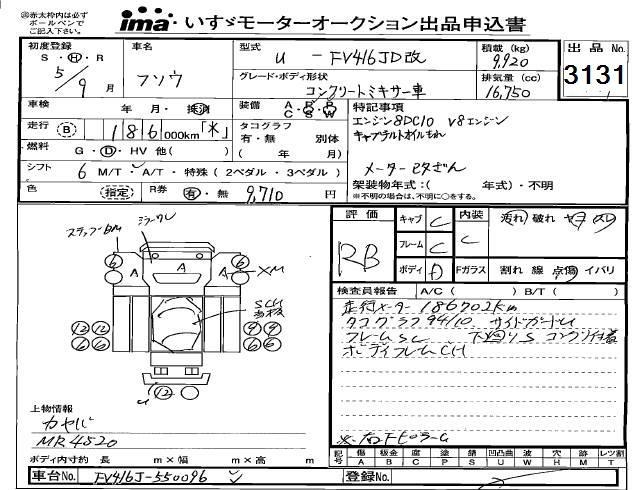 ㊟赤太枠内は必ず
ボールペンで
ご記入下さい。
ima・いすゞモーターオークション出品申込書
初度登録 車名 型式 積載 (kg) 出品 No.
S・H・R 5/9月 フソウ U - FV416JD改 9,920 3131
グレード・ボディ形状 排気量 (cc)
コンクリートミキサー車 16,750
車検 年・月・抹消 装備 A C P S P W 特記事項
エンジン8DC10 V8エンジン
走行 B 186000km「*」 タコグラフ
有・無 別体
燃料 G・D・HV 他( ) ( 年/ 月)
シフト 6 M/T・A/T・特殊 (2ペダル・3ペダル) メーター改ざん
色 (指定) R券 有・無 9,710 円 架装物年式:( 年式)・不明
※不明の場合は、不明に○をする。
評価 キャブ C 内装 汚れ 破れ
RB フレーム C C
ボディ D Fガラス 割れ 線 点傷 イバリ
検査員報告 A/C ( ) B/T ( )
走行メーター 186702Km
タコグラフ94/10 サイドガードU
フレームSC 下廻りS コンクリ付着
ボディフレームCH
上物情報
カヤバ
MR4520
ボディ内寸約 長 m×幅 m×高 m
記号 傷 A 板金 B 腐 C 塗 P 錆 S 凹凸曲 U 波 W 穴 H 欠 M レツ割 T
車台No. FV416J-550096 登録No.